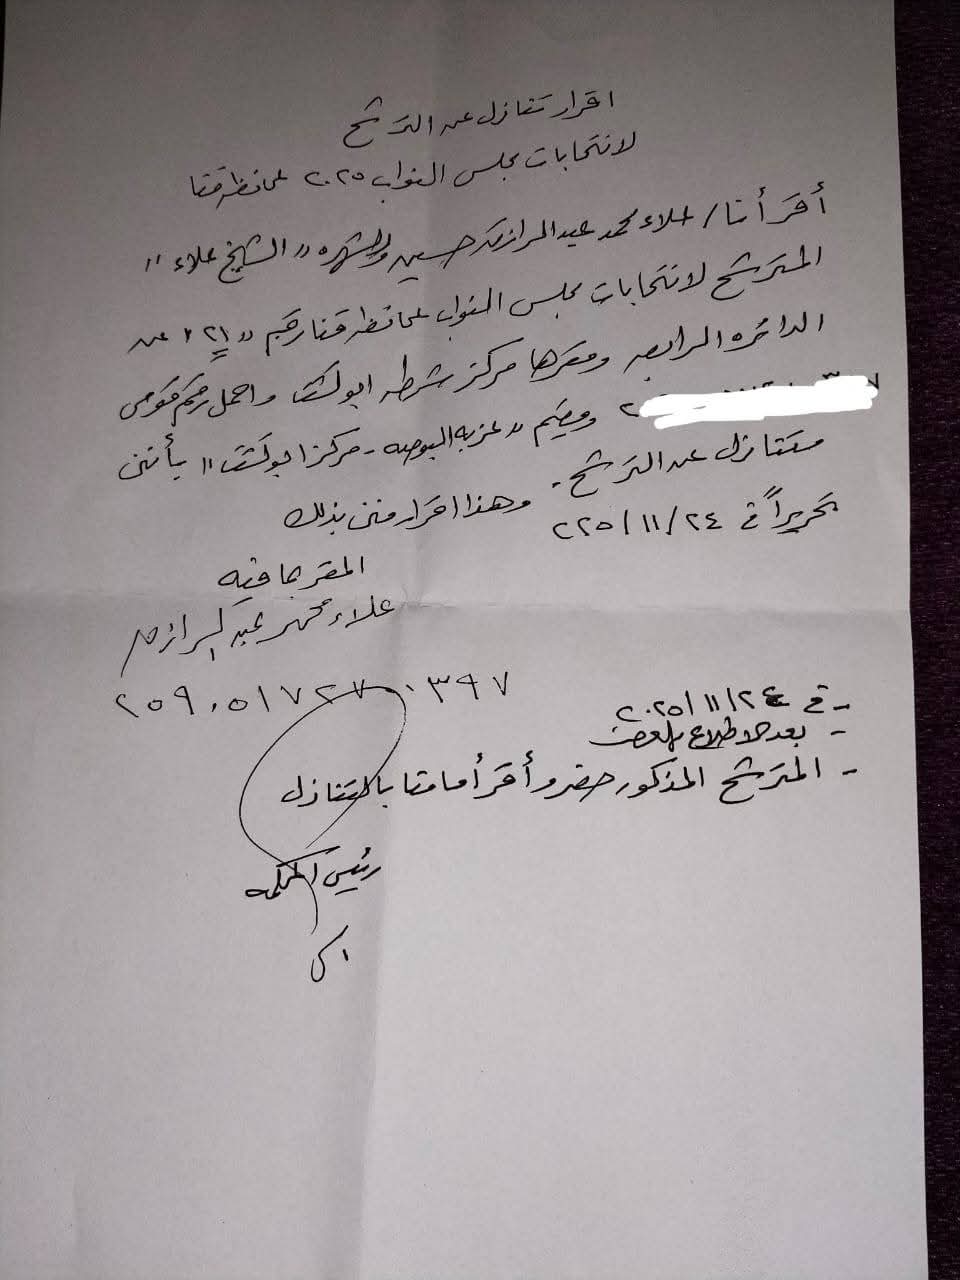 اقرار تنازل عن الترشح
لانتخابات مجلس النواب ٢٠٢٥ بمحافظة قنا
أقر أنا / علاء محمد عبدالرازق حسين والشهره " الشيخ علاء "
المترشح لانتخابات مجلس النواب بمحافظة قنا رقم " ٢١ " عن
الدائره الرابعه ومقرها مركز شرطه ابوتشت واحمل رقم قومى
ومقيم " عزبه البوصه - مركز ابوتشت " بأننى
متنازل عن الترشح - وهذا اقرار منى بذلك
تحريراً فى ٢٤ / ١١ / ٢٢٥
المقر بما فيه
علاء محمد عبد الرازق
٢٥٩٠٥١٧٢٧٠٣٩٧
- فى ٢٤ / ١١ / ٢٠٢٥
- بعد الاطلاع
- المترشح المذكور حضر وأقر أمامنا بالتنازل
رئيس المحكمه